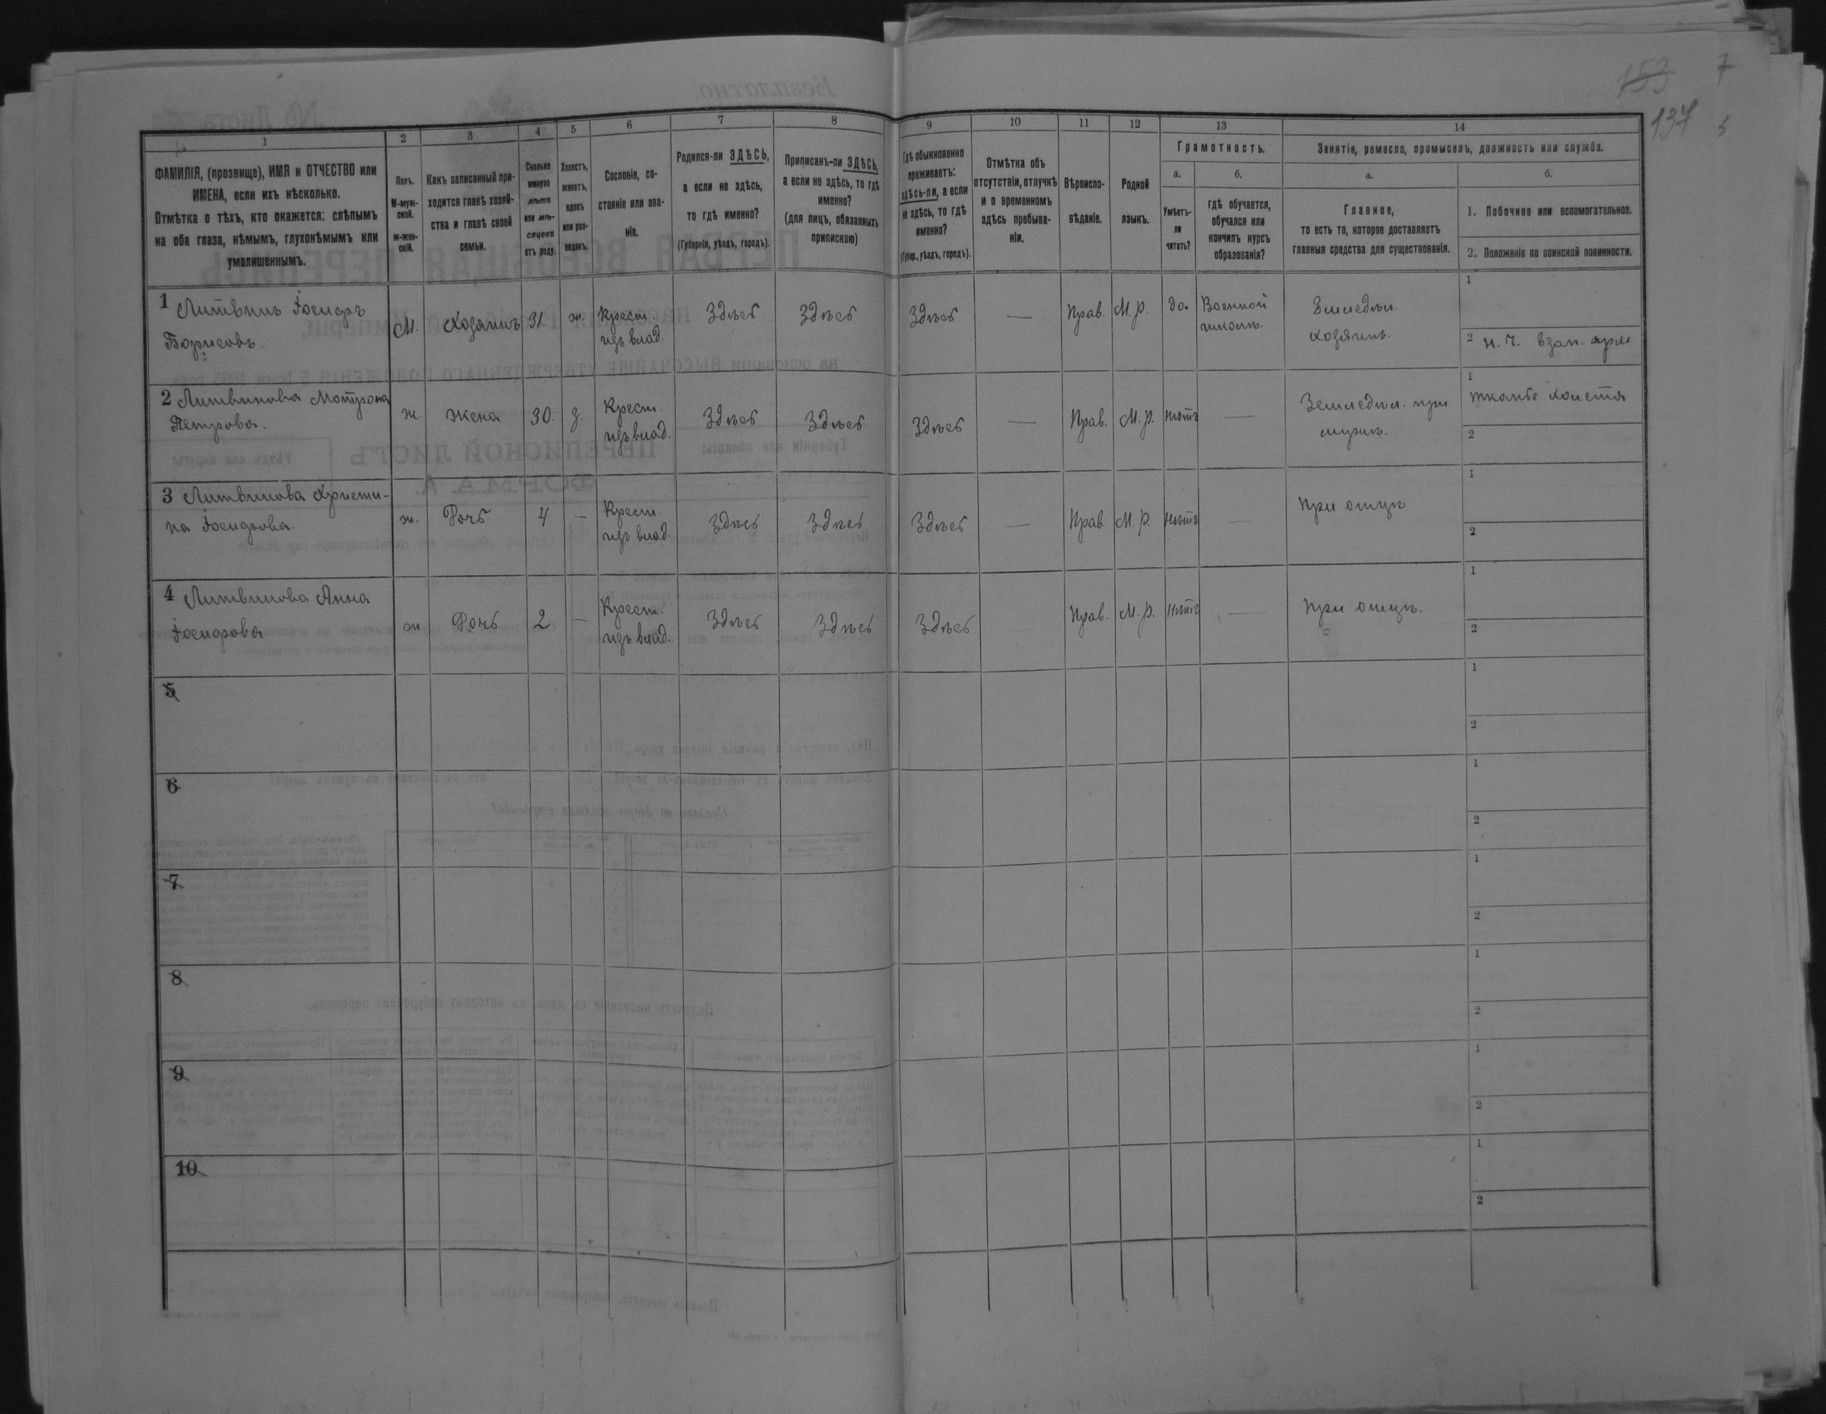 153 7
137
1 2 3 4 5 6 7 8 9 10 11 12 13 14
ФАМИЛІЯ, (прозвище), ИМЯ и ОТЧЕСТВО или
ИМЕНА, если ихъ нѣсколько.
Отмѣтка о тѣхъ, кто окажется: слѣпымъ
на оба глаза, нѣмымъ, глухонѣмымъ или
умалишеннымъ.
Полъ.
М-муж-
ской.
Ж-жен-
скій.
Какъ записанный при-
ходится главѣ хозяй-
ства и главѣ своей
семьи.
Сколько
минуло
лѣтъ
или мѣ-
сяцевъ
отъ роду.
Холостъ,
женатъ,
вдовъ
или раз-
веденъ.
Сословіе, со-
стояніе или зва-
ніе.
Родился-ли ЗДѢСЬ,
а если не здѣсь,
то гдѣ именно?
(Губернія, уѣздъ, городъ).
Приписанъ-ли ЗДѢСЬ,
а если не здѣсь, то гдѣ
именно?
(для лицъ, обязанныхъ
припискою)
Гдѣ обыкновенно
проживаетъ:
здѣсь-ли, а если
не здѣсь, то гдѣ
именно?
(Губер., уѣздъ, городъ).
Отмѣтка объ
отсутствіи, отлучкѣ
и о временномъ
здѣсь пребыва-
ніи.
Вѣроиспо-
вѣданіе.
Родной
языкъ.
Грамотность.
а.
Умѣетъ-
ли
читать?
б.
гдѣ обучается,
обучался или
кончилъ курсъ
образованія?
Занятіе, ремесло, промыселъ, должность или служба.
а.
Главное,
то есть то, которое доставляетъ
главныя средства для существованія.
б.
1. Побочное или вспомогательное.
2. Положеніе по воинской повинности.
1 Литвинъ Іосифъ
Борисовъ.
М. Хозяинъ 31. ж. Крест.
изъ влад.
Здѣсь Здѣсь Здѣсь — Прав. М. р. да. Военной
школѣ.
Земледѣл.
хозяинъ.
1
2 н. ч. Взап. арм
2 Литвинова Мотрона
Петрова.
ж жена 30. з. Крест.
изъ влад.
Здѣсь Здѣсь Здѣсь — Прав. М. р. нѣтъ —
Земледѣл. при
мужѣ.
1 ткатье холста
2
3 Литвинова Христи-
на Іосифова.
ж. Дочь 4 — Крест.
изъ влад.
Здѣсь Здѣсь Здѣсь — Прав. М. р. нѣтъ —
При отцѣ
1
2
4 Литвинова Анна
Іосифова
ж Дочь 2 — Крест.
изъ влад.
Здѣсь Здѣсь Здѣсь Прав. М. р. нѣтъ —
При отцѣ.
1
2
5
1
2
6
1
2
7
1
2
8
1
2
9
1
2
10
1
2